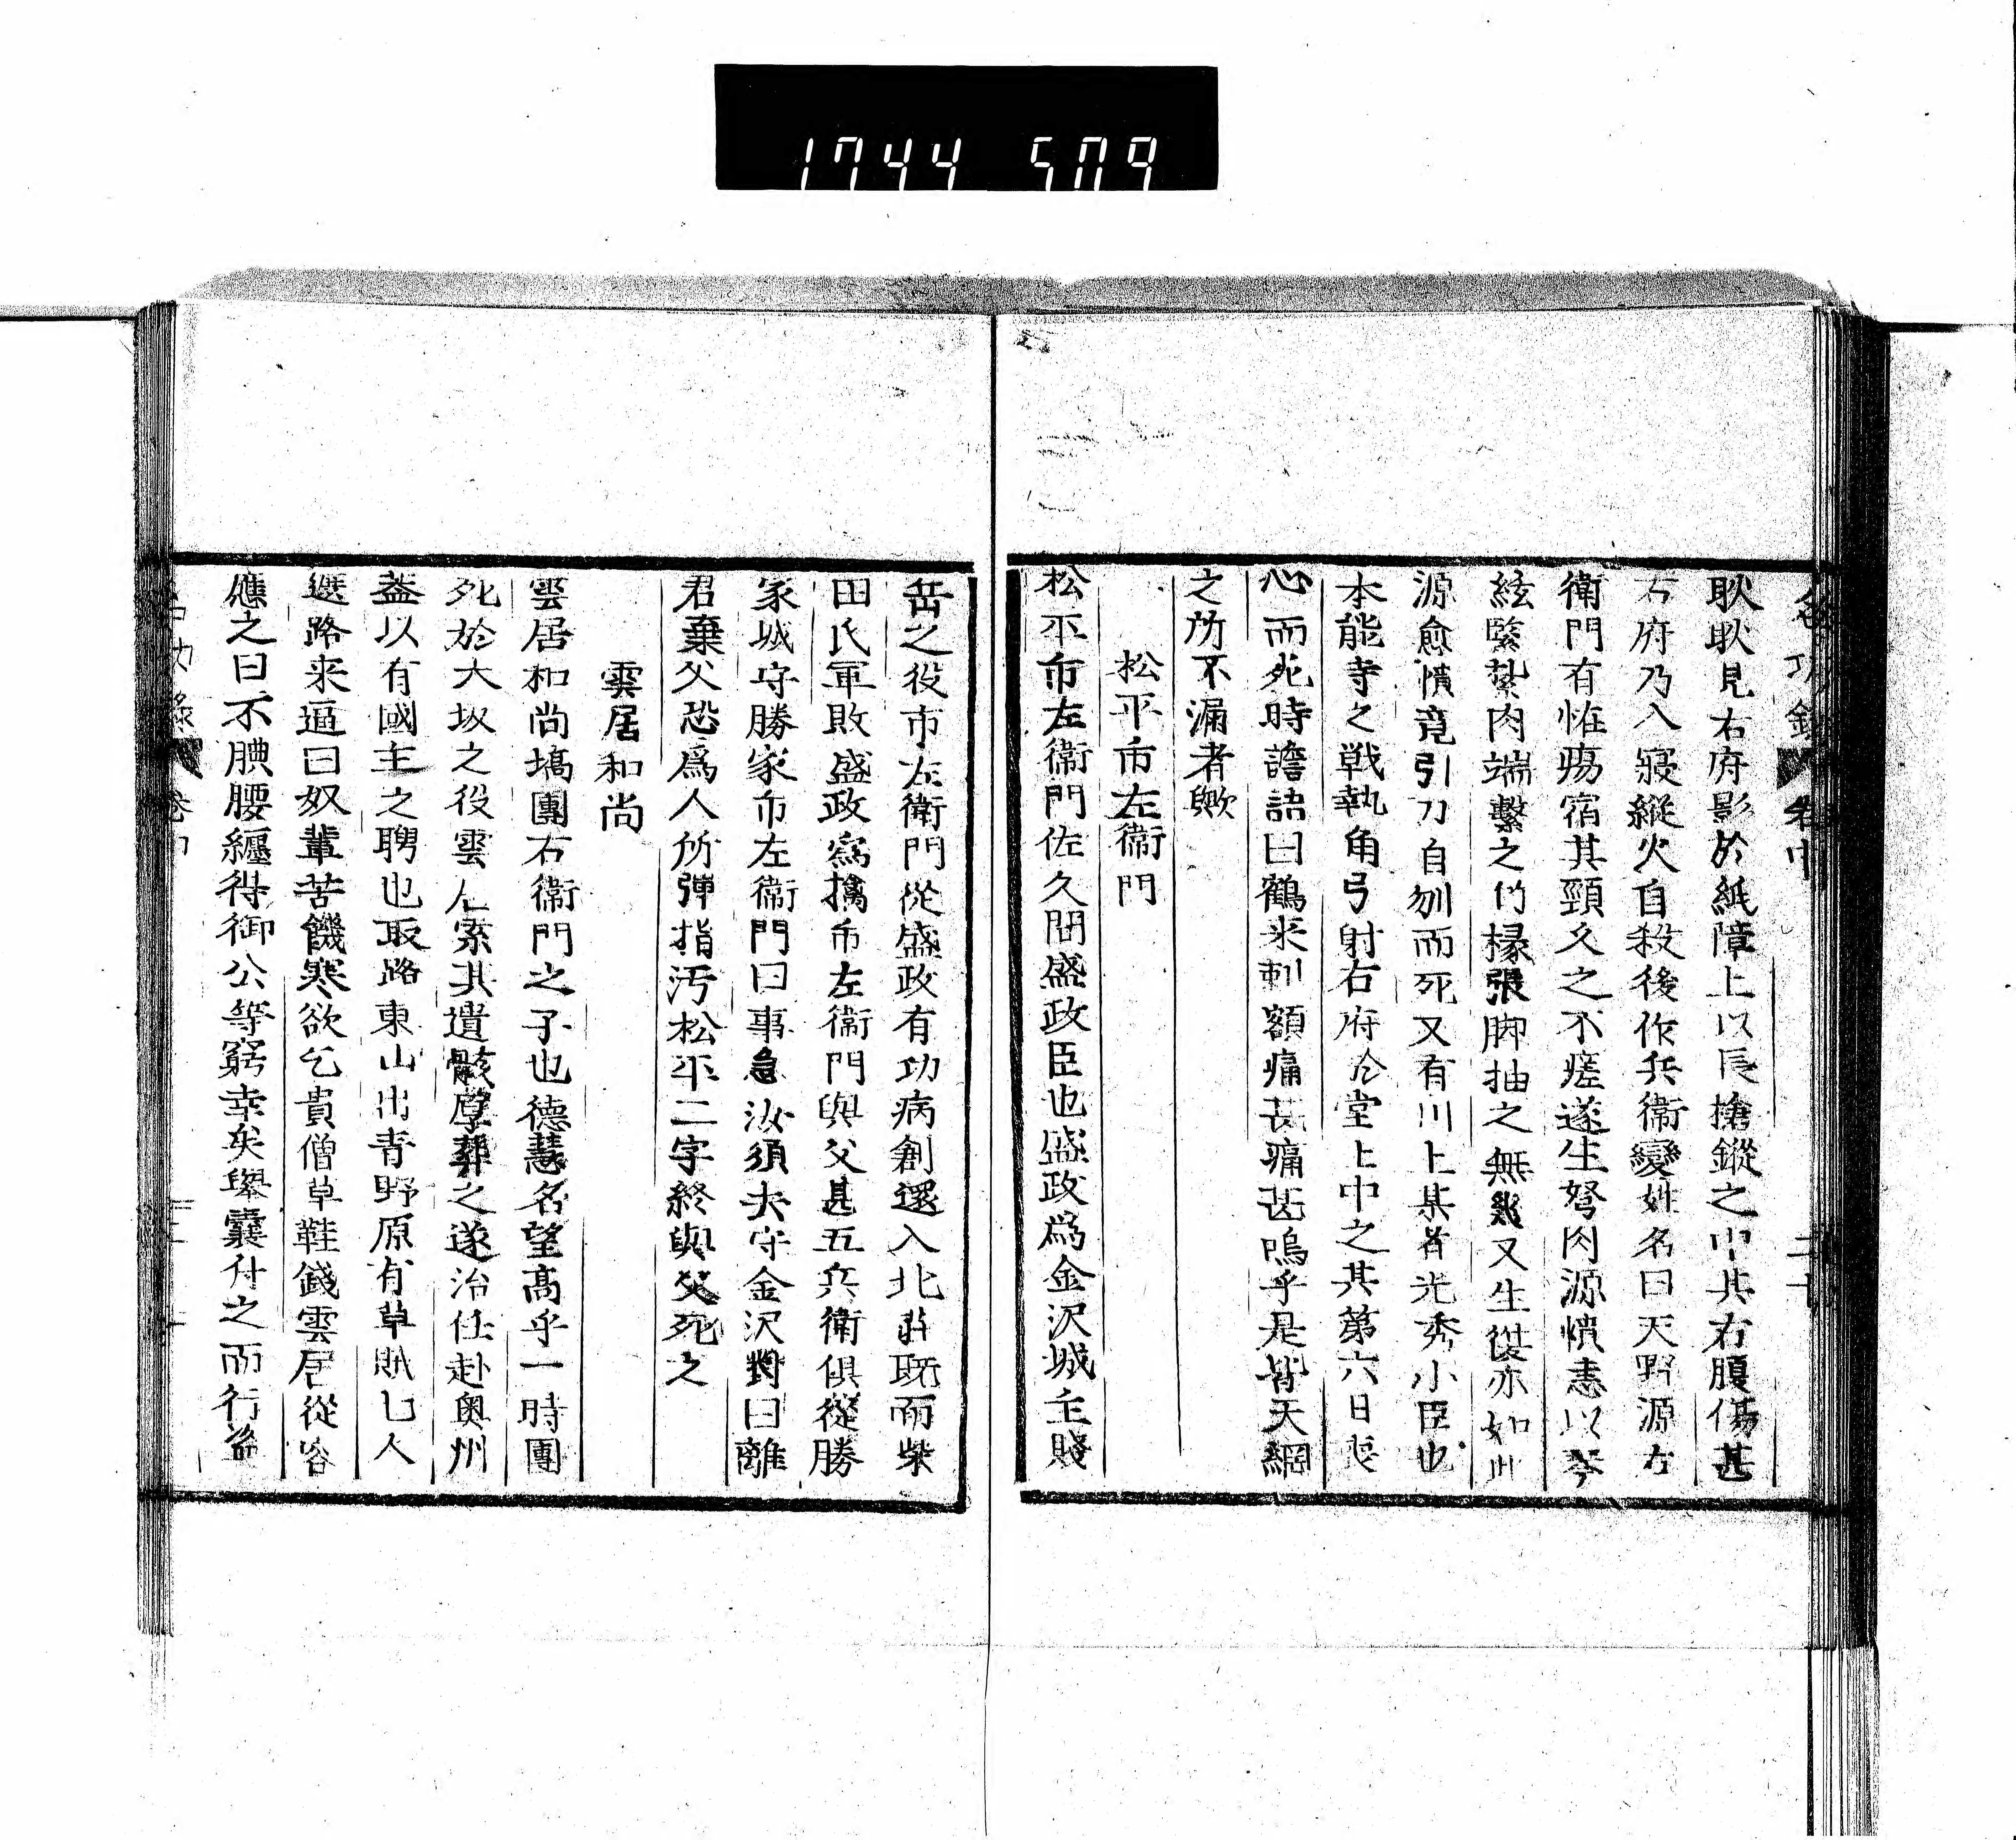 1744 509
耿耿見右府影於紙障上以長搶鏦之中其右腹傷甚
右府乃入寢縱火自殺後作兵衛變姓名曰天野源右
衛門有恠瘍宿其頸久之不瘥遂生瘤肉源憤恚以琴
絃緊紮肉端繫之竹椽張脚抽之無幾又生復亦如此
源愈憤竟引刀自刎而死又有川上某者光秀小臣也
本能寺之戦執角弓射右府仌堂上中之其第六日喪
心而死時譫語曰鶴来刺額痛甚痛甚嗚乎是皆天網
之所不漏者歟
松平市左衛門
松平市左衛門佐久間盛政臣也盛政為金沢城主賤
岳之役市左衛門從盛政有功病創還入北莊既而柴
田氏軍敗盛政寫擒市左衛門與父甚五兵衛俱從勝
家城守勝家市左衛門曰事急汝須去守金沢對曰離
君棄父恐為人所彈指汚松平二字終與父死之
雲居和尚
雲居和尚塙團右衛門之子也德慧名望高乎一時團
死於大坂之役雲仏索其遺骸厚葬之遂治任赴奥州
蓋以有國主之聘也取路東山出青野原有草賊七人
遮路来逼曰奴輩苦饑寒欲乞貴僧草鞋錢雲居從容
應之曰不腆腰纏得御公等窮幸矣舉囊付之而行盜